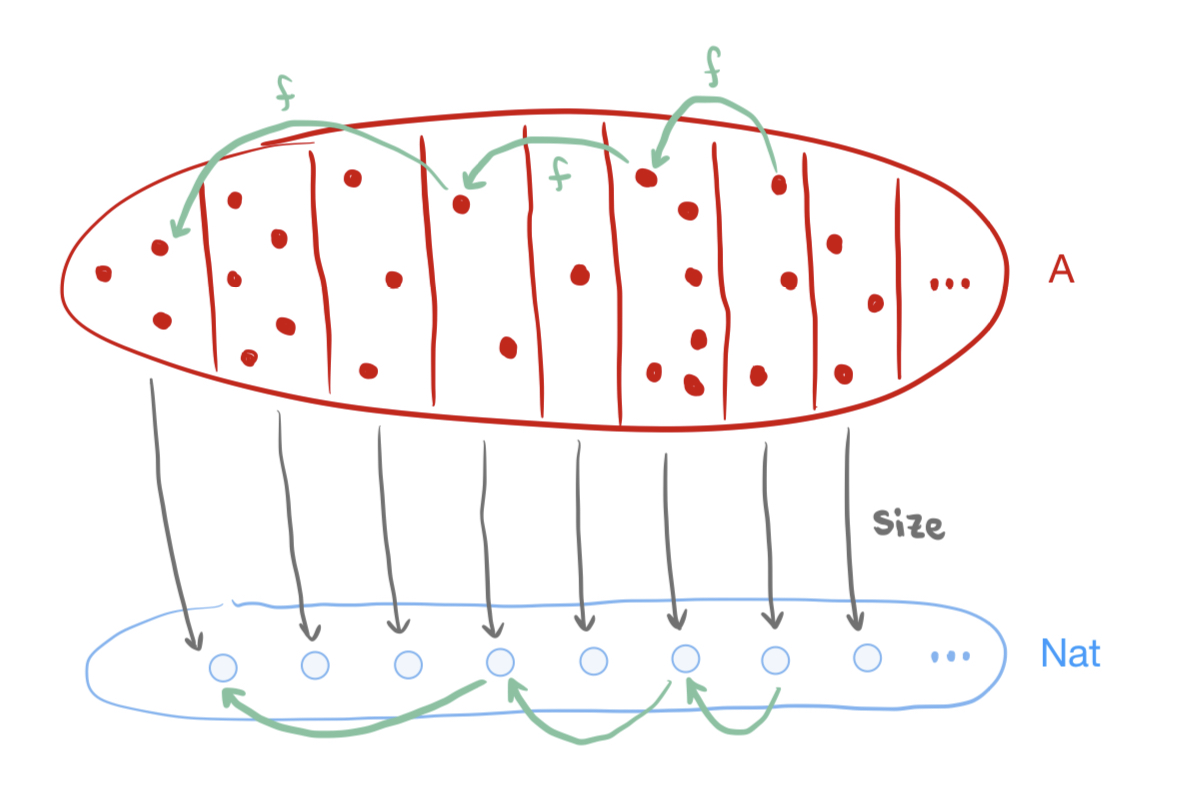 f
f
f
A
...
size
Nat
...